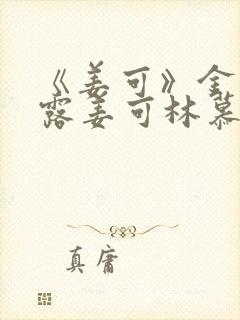 《姜可》金
露姜可林慕
真庸